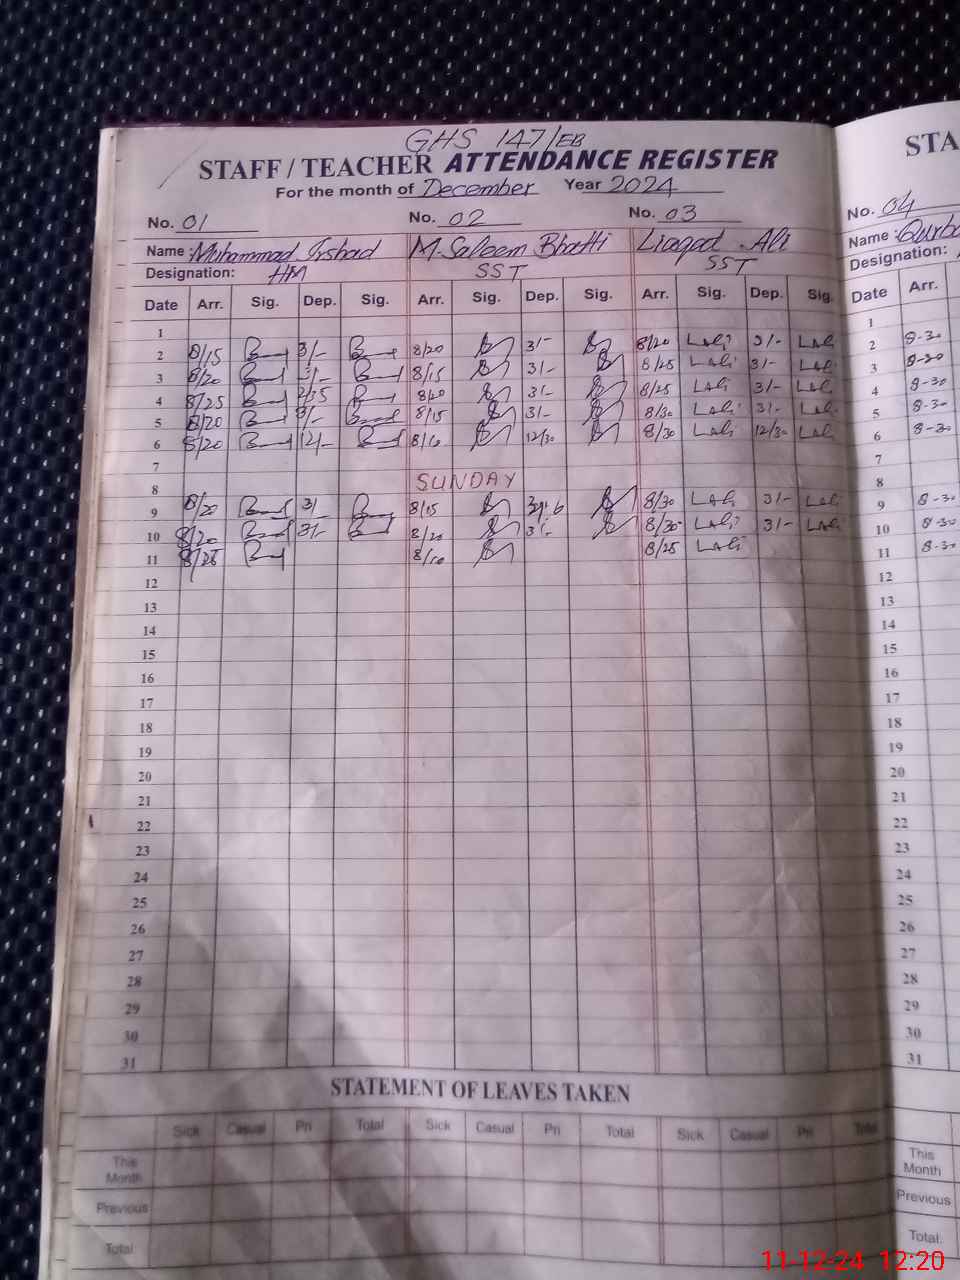 GHS 147/EB
STAFF / TEACHER ATTENDANCE REGISTER
For the month of December Year 2024
No. 01 No. 02 No. 03
Name : Muhammad Irshad M. Saleem Bhatti Liaqad . Ali
Designation: HM SST SST
Date Arr. Sig. Dep. Sig. Arr. Sig. Dep. Sig. Arr. Sig. Dep. Sig.
1
2 8/15 3/- 8/20 3/- 8/20 LALi 3/- LALi
3 8/20 3/- 8/15 3/- 8/25 LALi 3/- LALi
4 8/25 8/20 3/- 8/25 LALi 3/- LALi
5 8/20 3/- 8/15 3/- 8/30 LALi 3/- LALi
6 8/20 12/- 8/10 12/30 8/30 LALi 12/30 LALi
7
8 SUNDAY
9 8/20 3/- 8/15 8/30 LALi 3/- LALi
10 8/20 3/- 8/20 3/- 8/30 LALi 3/- LALi
11 8/25 8/10 8/25 LALi
12
13
14
15
16
17
18
19
20
21
22
23
24
25
26
27
28
29
30
31
STATEMENT OF LEAVES TAKEN
Sick Casual Pri Total Sick Casual Pri Total Sick Casual Pri Total
This Month
Previous
Total
STA
No. 04
Name : Qurba
Designation:
Date Arr.
1
2 8-30
3 8-30
4 8-30
5 8-30
6 8-30
7
8
9 8-30
10 8-30
11 8-30
12
13
14
15
16
17
18
19
20
21
22
23
24
25
26
27
28
29
30
31
This Month
Previous
Total
11-12-24 12:20